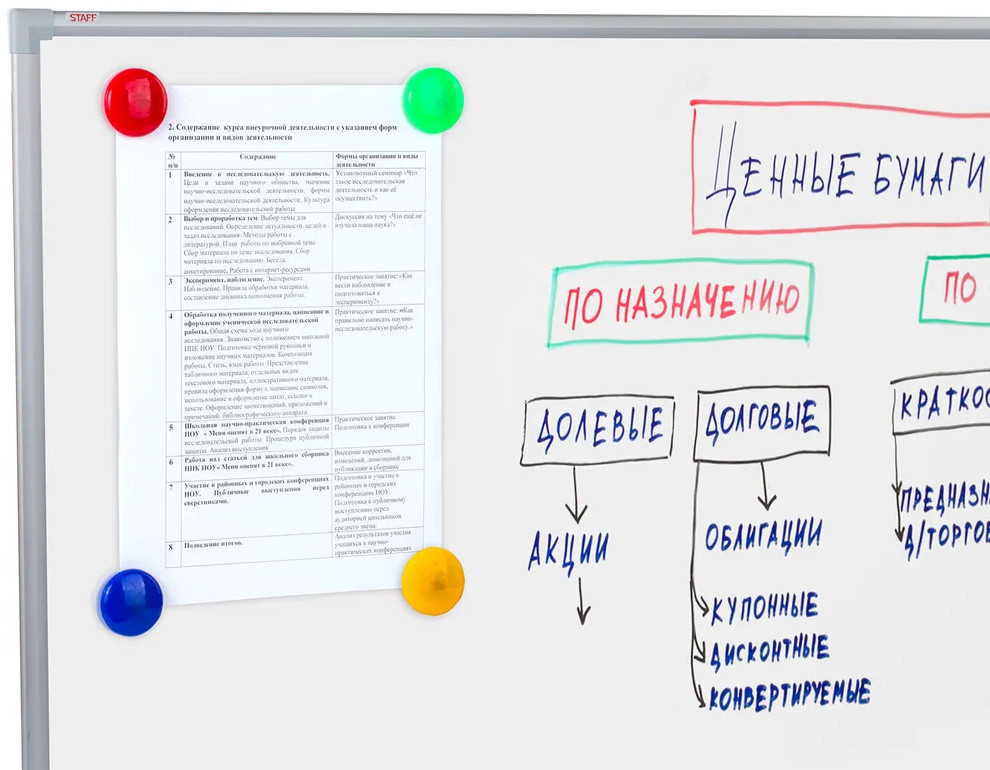 STAFF
2. Содержание курса внеурочной деятельности с указанием форм
организации и видов деятельности
№
п/п
Содержание
Формы организации и виды
деятельности
1
Введение в исследовательскую деятельность.
Цели и задачи научного общества, значение
научно-исследовательской деятельности, формы
научно-исследовательской деятельности. Культура
оформления исследовательской работы
Установочный семинар «Что
такое исследовательская
деятельность и как её
осуществить?»
2
Выбор и проработка тем. Выбор темы для
исследований. Определение актуальности, целей и
задач исследования. Методы работы с
литературой. План работы по выбранной теме.
Сбор материала по теме исследования. Сбор
материала по исследованию. Беседа,
анкетирование. Работа с интернет-ресурсами
Дискуссия на тему «Что ещё не
изучала наша наука?»
3
Эксперимент, наблюдение. Эксперимент.
Наблюдение. Правила обработки материала,
составление дневника выполнения работы.
Практическое занятие: «Как
вести наблюдение и
подготовиться к
эксперименту?»
4
Обработка полученного материала, написание и
оформление ученической исследовательской
работы. Общая схема хода научного
исследования. Знакомство с положением школьной
НПК НОУ. Подготовка черновой рукописи и
изложение научных материалов. Композиция
работы. Стиль, язык работы. Представление
табличного материала, отдельных видов
текстового материала, иллюстративного материала,
правила оформления формул, написание символов,
использование и оформление цитат, ссылки в
тексте. Оформление заимствований, приложений и
примечаний, библиографического аппарата.
Практическое занятие: «Как
правильно написать научно-
исследовательскую работу.»
5
Школьная научно-практическая конференция
НОУ « Меня оценят в 21 веке». Порядок защиты
исследовательской работы. Процедура публичной
защиты. Анализ выступления
Практическое занятие.
Подготовка к конференции
6
Работа над статьей для школьного сборника
НПК НОУ« Меня оценят в 21 веке».
Внесение корректив,
изменений, дополнений для
публикации в сборнике
7
Участие в районных и городских конференциях
НОУ. Публичные выступления перед
сверстниками.
Подготовка к участие в
районных и городских
конференциях НОУ
Подготовка к публичному
выступлению перед
аудиторией школьников
среднего звена.
8
Подведение итогов.
Анализ результатов участия
учащихся в научно-
практических конференциях
ЦЕННЫЕ БУМАГИ
ПО НАЗНАЧЕНИЮ
ПО
ДОЛЕВЫЕ
ДОЛГОВЫЕ
КРАТКОС
АКЦИИ
ОБЛИГАЦИИ
ПРЕДНАЗН
Д/ТОРГОВ
КУПОННЫЕ
ДИСКОНТНЫЕ
КОНВЕРТИРУЕМЫЕ